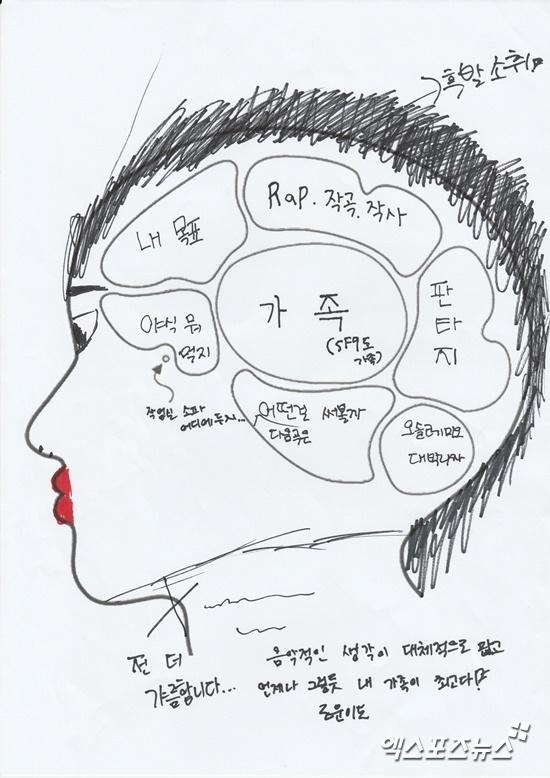 흑발 소휘
Rap. 작곡. 작사
내 목표
가 족
(SF9도
가족)
판
타
지
야식 뭐
먹지
작업실 소파
어디에 두지...
어떤걸 써볼까
다음곡은
오늘
대박나자
전 더
갸름합니다...
음악적인 생각이 대체적으로 많고
언제나 그렇듯 내 가족이 최고다!
로운이도
엑스포츠뉴스